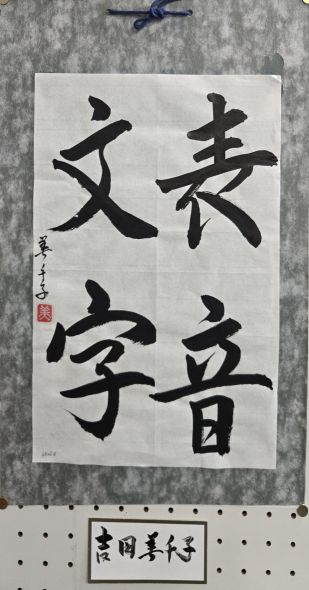 表音
文字
美千子
美
吉田美千子